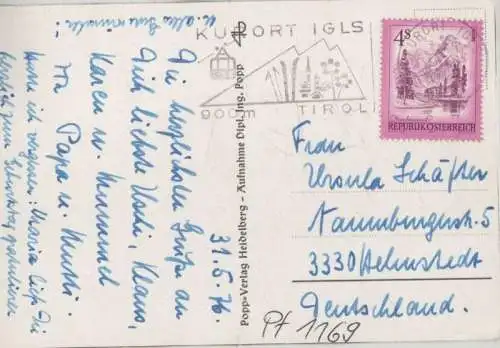 31.5.76
Die herzlichsten Grüße an
Dich liebste Uschi, Klaus,
Karen u. Mummel
Papa u. Mutti.
Hatte ich vergessen: Maria läßt Dir
herzlich zum Geburtstag gratulieren
u. alles Gute wünschen!
Popp-Verlag Heidelberg - Aufnahme Dipl. Ing. Popp
KURORT IGLS
900m TIROL
4S
REPUBLIK ÖSTERREICH
Frau
Ursula Schäfter
Naumburgerstr. 5
3330 Helmstedt
Deutschland.
Pf 1169